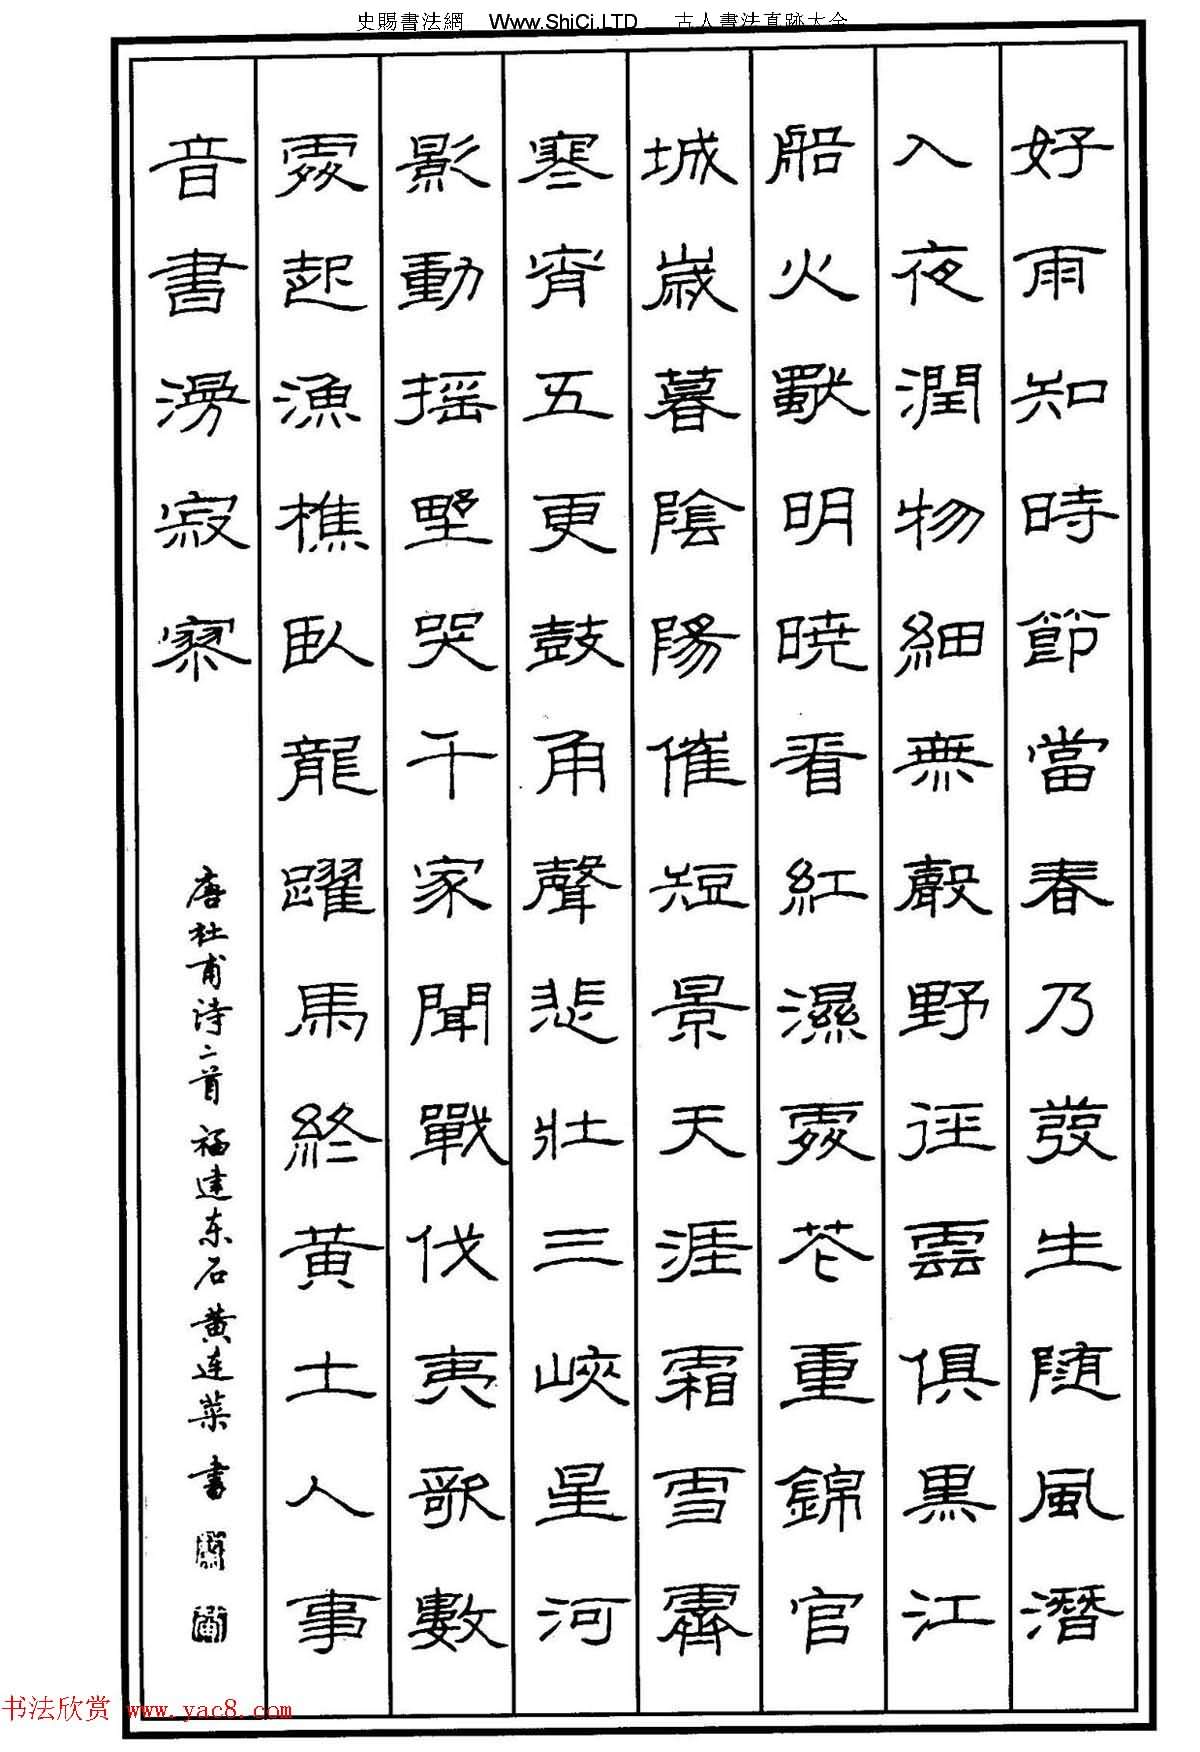 史賜書法網 Www.ShiCi.LTD 古人書法真跡大全
好雨知時節當春乃發生随風潛
入夜潤物細無聲野徑雲俱黑江
船火獸明曉看紅濕處花重錦官
城歲暮陰陽催短景天涯霜雪霽
寒宵五更鼓角聲悲壯三峽星河
影動摇野哭千家聞戰伐夷歌數
處起漁樵臥龍躍馬終黃土人事
音書漫寂寥
唐杜甫诗二首 福建东石黄连菜书
书法欣赏 www.yac8.com